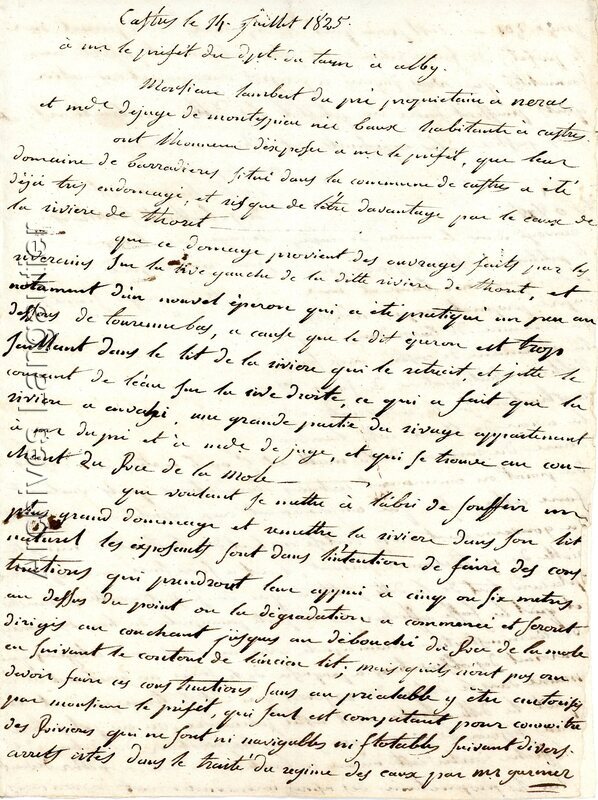 Castres le 14. juillet 1825
à mr. le prefet du dpt. du tarn à alby.
Monsieur lambert du pré propriétaire à nerac
et mde. dejuge de montespieu née baux habitante à castres
ont l'honneur d'exposer à mr le préfet, que leur
domaine de barradieres situé dans la commune de castres a été
déjà très endomagé, et risque de l'être davantage par le eaux de
la riviere de thoret
que ce domage provient des ouvrages faits par les
riverains sur la rive gauche de la ditte riviere de thoret, et
notament d'un nouvel éperon qui a été pratiqué un peu au
dessous de tourenne bas, a cause que le dit éperon est trop
saillant dans le lit de la riviere qui le retreait, et jette le
courant de l'eau sur la rive droite, ce qui a fait que la
riviere a envahi, une grande partie du rivage appartenant
à mr dupré et à mde. de juge, et qui se trouve au cou-
chant du Roc de la mole
que voulant se mettre à l'abri de souffrir un
plus grand dommage et remettre la riviere dans son lit
naturel les exposants sont dans l'intention de faire des cons
tructions qui prendront leur appui à cinq ou six metres
au dessus du point ou la dégradation a commencé et seront
dirigés au couchant jusques au debouché du Roc de la mole
en suivant le contour de l'ancien lit, mais qu'ils n'ont pas cru
devoir faire ces constructions sans au préalable y être autorisés
par monsieur le préfet qui seul est compétant pour connoitre
des Rivieres qui ne sont ni navigables ni flotables suivant divers
arrets cités dans le traité du regime des eaux par mr garnier
archives l'ardoisier